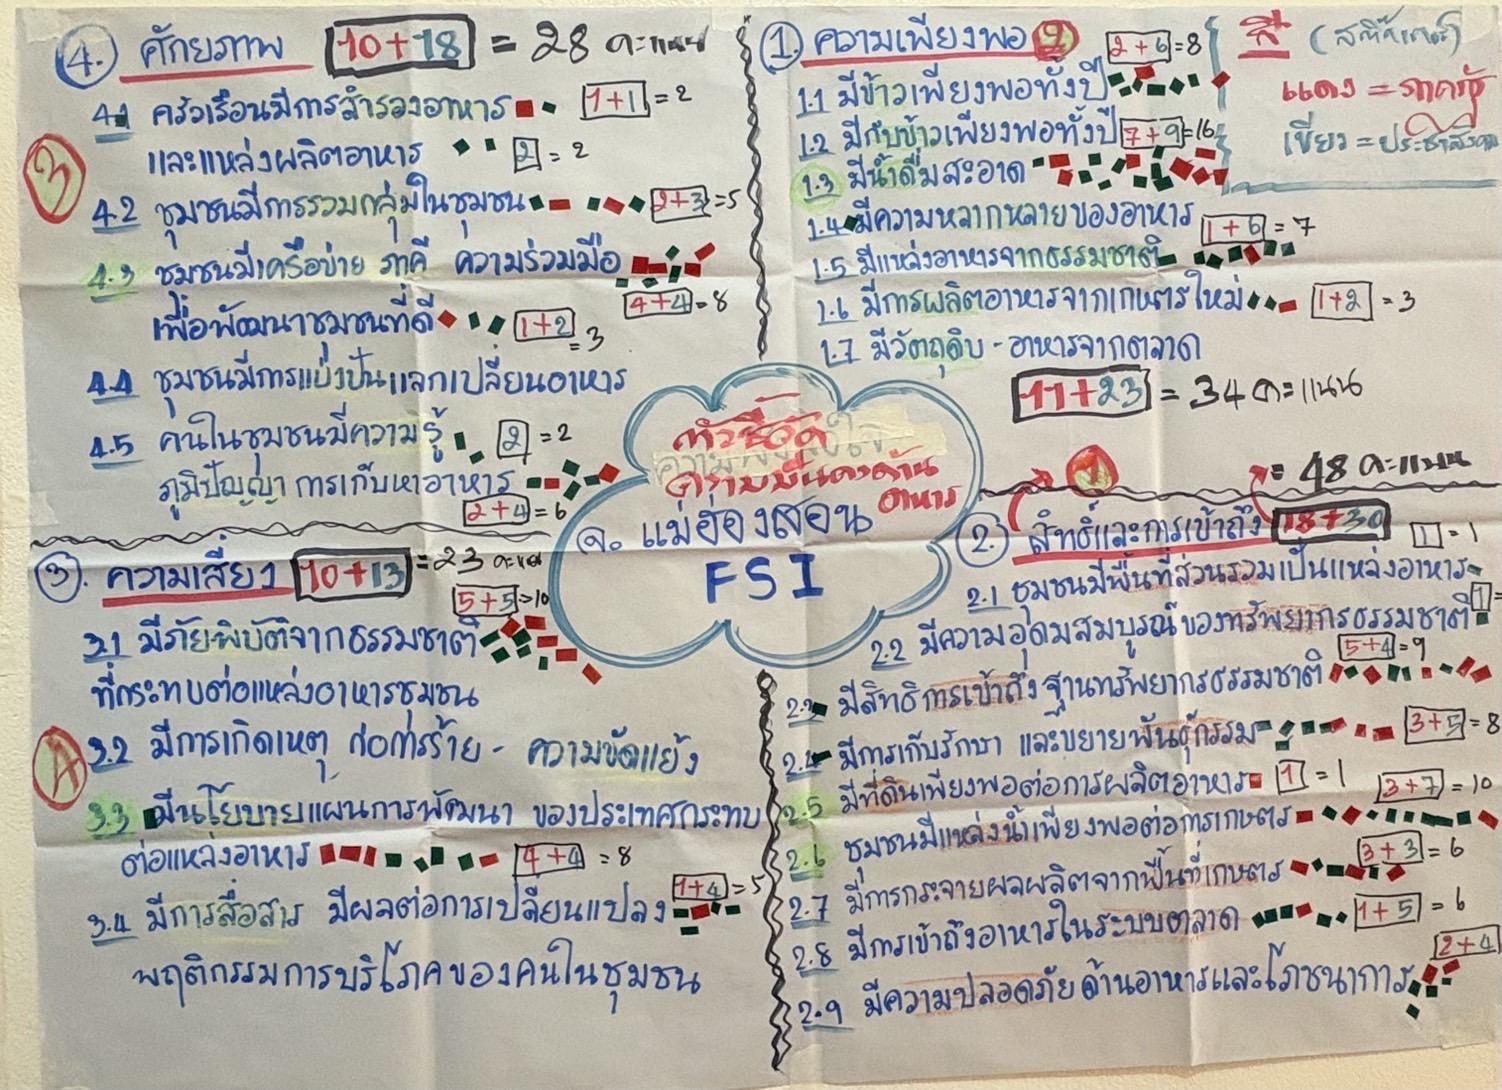 4. ศักยภาพ 10+18 = 28 คะแนน
3
4.1 ครัวเรือนมีการสำรองอาหาร 1+1 = 2
และแหล่งผลิตอาหาร 2 = 2
4.2 ชุมชนมีการรวมกลุ่มในชุมชน 2+3 = 5
4.3 ชุมชนมีเครือข่าย ภาคี ความร่วมมือ
4+4 = 8
เพื่อพัฒนาชุมชนที่ดี 1+2 = 3
4.4 ชุมชนมีการแบ่งปันแลกเปลี่ยนอาหาร
4.5 คนในชุมชนมีความรู้ 2 = 2
ภูมิปัญญา การเก็บหาอาหาร
2+4 = 6
1. ความเพียงพอ 2 2+6 = 8
1.1 มีข้าวเพียงพอทั้งปี
1.2 มีกับข้าวเพียงพอทั้งปี 7+9 = 16
1.3 มีน้ำดื่มสะอาด
1.4 มีความหลากหลายของอาหาร
1+6 = 7
1.5 มีแหล่งอาหารจากธรรมชาติ
1.6 มีการผลิตอาหารจากเกษตรใหม่ 1+2 = 3
1.7 มีวัตถุดิบ - อาหารจากตลาด
11+23 = 34 คะแนน
สี (สติ๊กเกอร์)
แดง = ภาครัฐ
เขียว = ประชาสังคม
ตัวชี้วัด
ความมั่นคงด้าน
อาหาร
จ. แม่ฮ่องสอน
FSI
3. ความเสี่ยง 10+13 = 23 คะแนน
5+5 = 10
3.1 มีภัยพิบัติจากธรรมชาติ
ที่กระทบต่อแหล่งอาหารชุมชน
4
3.2 มีการเกิดเหตุ ก่อการร้าย - ความขัดแย้ง
3.3 มีนโยบายแผนการพัฒนา ของประเทศกระทบ
ต่อแหล่งอาหาร 4+4 = 8
1+4 = 5
3.4 มีการสื่อสาร มีผลต่อการเปลี่ยนแปลง
พฤติกรรมการบริโภคของคนในชุมชน
1 = 48 คะแนน
2. สิทธิ์และการเข้าถึง 18+30
1 = 1
2.1 ชุมชนมีพื้นที่ส่วนรวมเป็นแหล่งอาหาร
1 =
2.2 มีความอุดมสมบูรณ์ของทรัพยากรธรรมชาติ
5+4 = 9
2.3 มีสิทธิการเข้าถึงฐานทรัพยากรธรรมชาติ
2.4 มีการเก็บรักษา และขยายพันธุ์กรรม 3+5 = 8
2.5 มีที่ดินเพียงพอต่อการผลิตอาหาร 1 = 1
3+7 = 10
2.6 ชุมชนมีแหล่งน้ำเพียงพอต่อการเกษตร
3+3 = 6
2.7 มีการกระจายผลผลิตจากพื้นที่เกษตร
2.8 มีการเข้าถึงอาหารในระบบตลาด 1+5 = 6
2+4
2.9 มีความปลอดภัยด้านอาหารและโภชนาการ